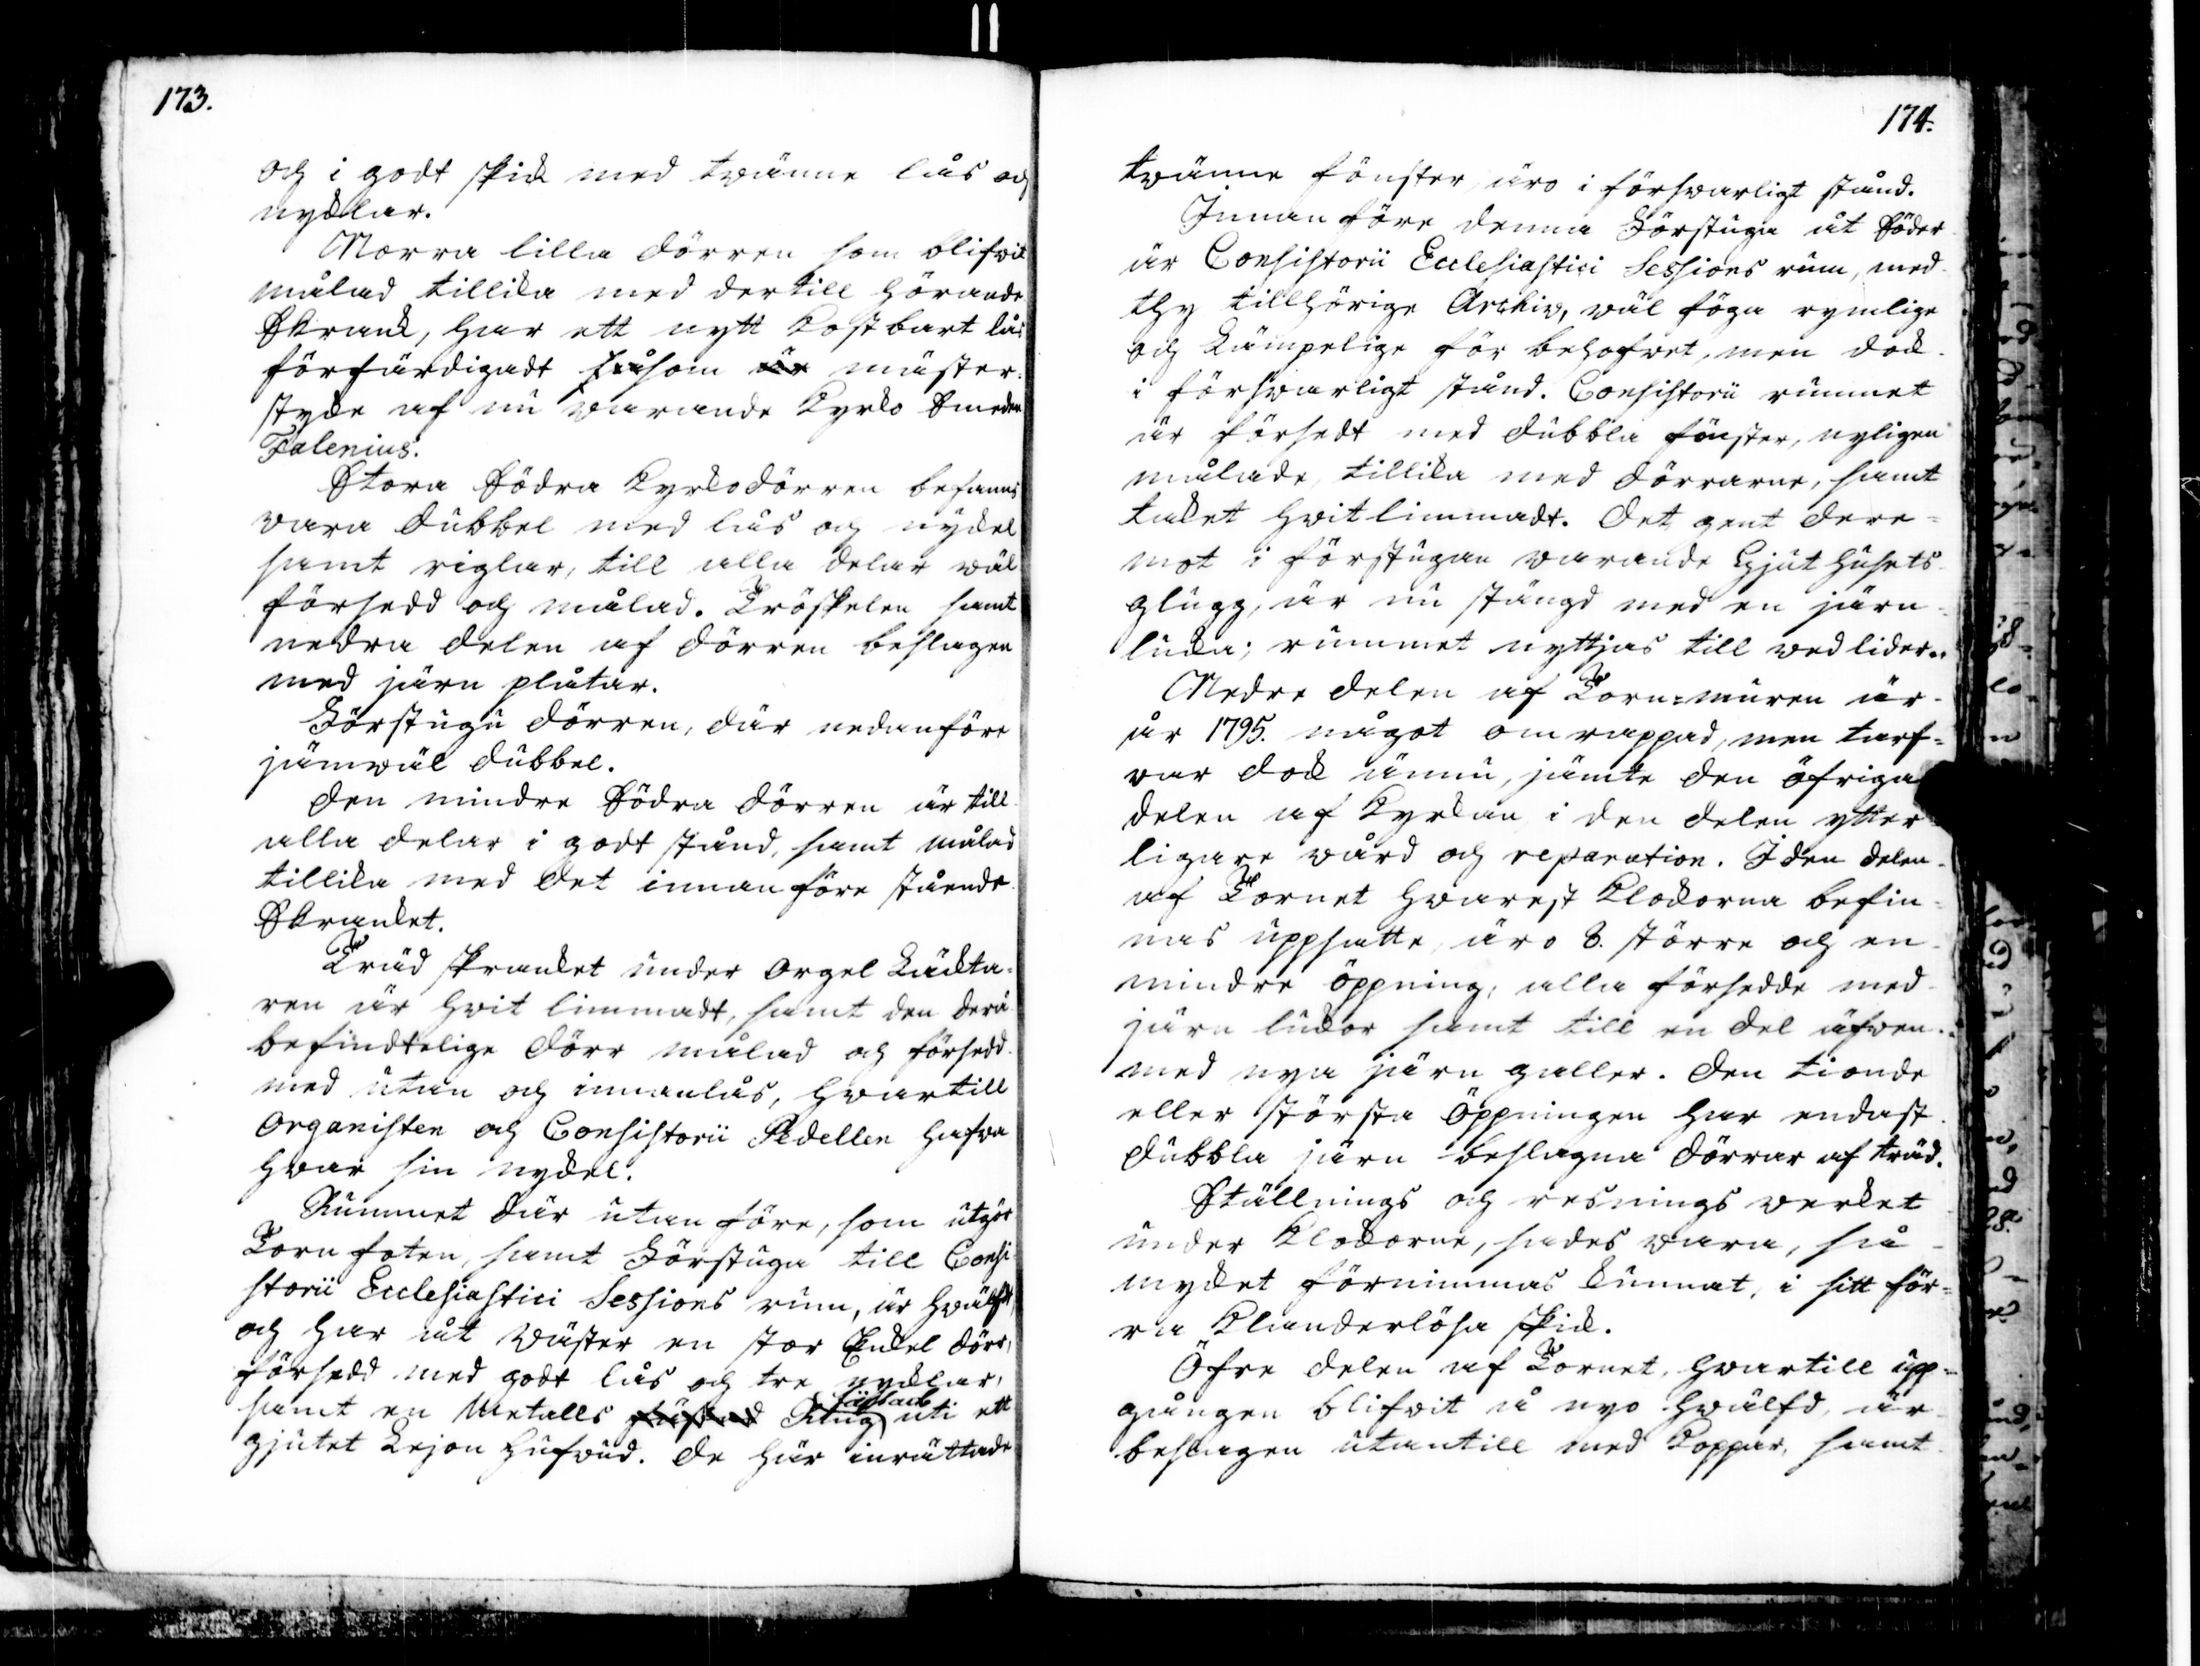 173.
och i godt skick med tvänne lås och
nycklar.
Norra lilla dörren som blifvit
målad tillika med dertill hörande
Skrank, har ett nytt kostbart lås
förfärdigadt såsom är mäster-
stycke af nu varande Kyrko Smeden
Falenius.
Stora Södra Kyrkodörren befanns
vara dubbel med lås och nyckel
samt riglar, till alla delar wäl
försedd och målad. Tröskelen samt
nedra delen af dörren beslagen
med järn plåtar.
Förstugu dörren, där nedanföre
jämwäl dubbel.
Den mindre Södra dörren är till
alla delar i godt stånd, samt målad
tillika med det innanföre stående
Skranket.
Träd skranket under Orgel Läkta-
ren är hvit limmadt, samt den derå
befindtelige dörr målad och försedd
med utan och innanlås, hvartill
Organisten och Consistorii Pedellen hafva
hvar sin nyckel.
Rummet där utan före, som utgör
Torn foten, samt Förstuga till Consi-
storii Ecclesiastici Sessions rum, är hvälft,
och har åt Wäster en stor Enkel dörr,
försedd med godt lås och tre nycklar,
samt en Metalls Ring fästad uti ett
gjutet Lejon hufvud. De här inrättade
174.
tvänne fönster, äro i försvarligt stånd.
Innanföre denna Förstuga åt Söder
är Consistorii Ecclesiastici Sessions rum, med
thy tillhörige Archiv, wäl föga rymlige
och Lämpelige för behofvet, men dock
i försvarligt stånd. Consistorii rummet
är försedt med dubbla fönster, nyligen
målade, tillika med dörrarne, samt
taket hvitlimmadt. Det gent dere-
mot i förstugan varande Gjut husets
glugg, är nu stängd med en järn
lucka; rummet nyttjas till ved lider.
Nedre delen af Torn-muren är
år 1795. något om rappad, men tarf-
var dock ännu, jämte den öfriga
delen af Kyrkan i den delen ytter-
ligare vård och reparation. I den delen
af Tornet hvarest Klockorna befin-
nas uppsatte, äro 8. större och en
mindre öppning, alla försedde med
järn luckor samt till en del äfven
med nya järn galler. Den tionde
eller största Öppningen har endast
dubbla järn beslagna dörrar af träd.
Ställnings och resnings verket
under Klockorne, sades vara, så
mycket förnimmas kunnat, i sitt för-
ra klanderlösa skick.
Öfre delen af Tornet, hvartill upp-
gången blifvit å nyo hvälfd, är
beslagen utantill med Koppar, samt